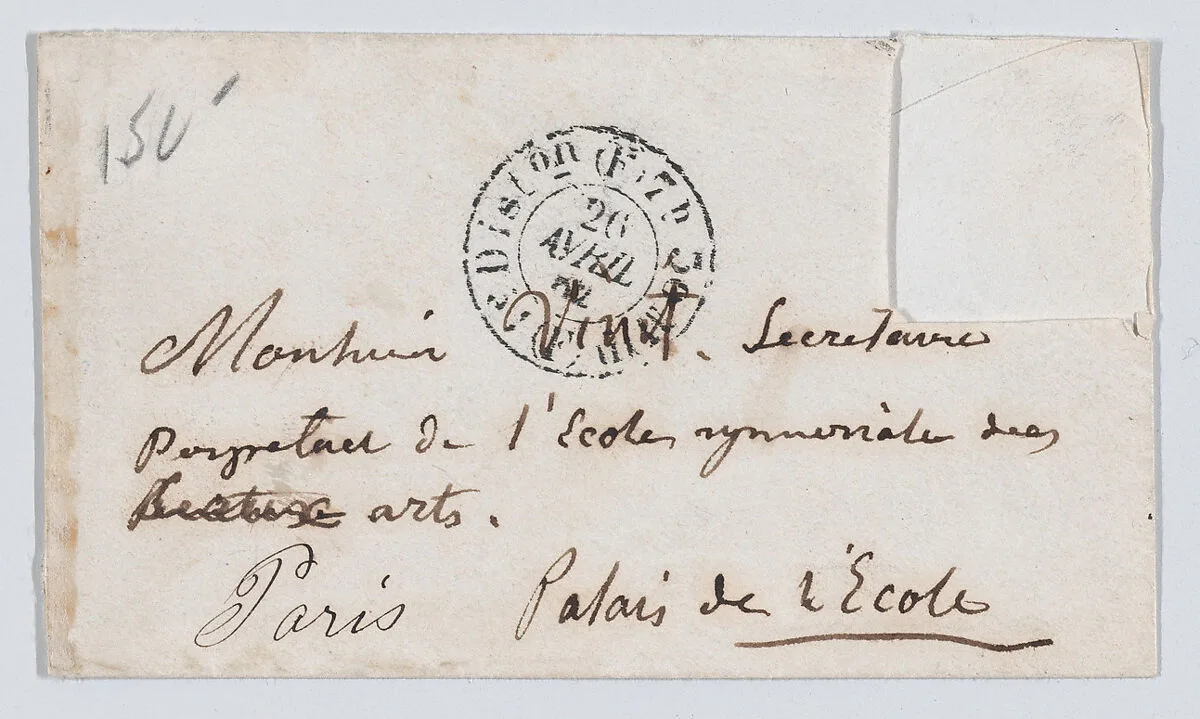 150
Distón (F) 7h
26
AVRIL
Monsieur Vinit. Secretaire
Perpretuel de l'Ecole ymmeriale des
Beaux arts.
Paris Palais de l'Ecole